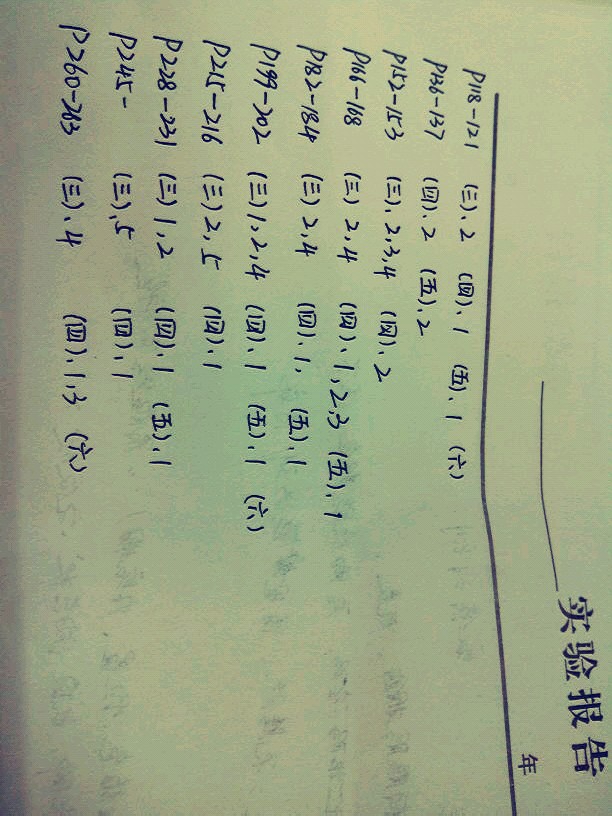 实验报告
年
P118-121 (三)、2 (四)、1 (五)、1 (六)
P136-137 (四)、2 (五)、2
P152-153 (三)、2,3,4 (四)、2
P166-168 (三) 2,4 (四)、1,2,3 (五)、1
P182-184 (三) 2,4 (四)、1, (五)、1
P199-202 (三) 1,2,4 (四)、1 (五)、1 (六)
P215-216 (三) 2,5 (四)、1
P228-231 (三) 1,2 (四)、1 (五)、1
P245- (三)、5 (四)、1
P260-263 (三)、4 (四)、1,3 (六)